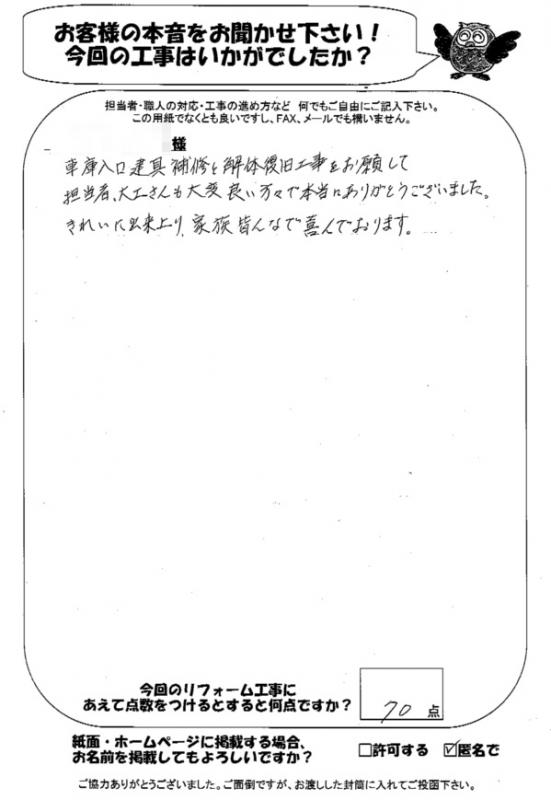 お客様の本音をお聞かせ下さい！
今回の工事はいかがでしたか？
担当者・職人の対応・工事の進め方など 何でもご自由にご記入下さい。
この用紙でなくとも良いですし、FAX、メールでも構いません。
様
車庫入口建具補修と解体復旧工事をお願して
担当者、大工さんも大変良い方々で本当にありがとうございました。
きれいに出来上り、家族皆んなで喜んでおります。
今回のリフォーム工事に
あえて点数をつけるとすると何点ですか？
70 点
紙面・ホームページに掲載する場合、
お名前を掲載してもよろしいですか？
□許可する ☑匿名で
ご協力ありがとうございました。ご面倒ですが、お渡しした封筒に入れてご投函下さい。